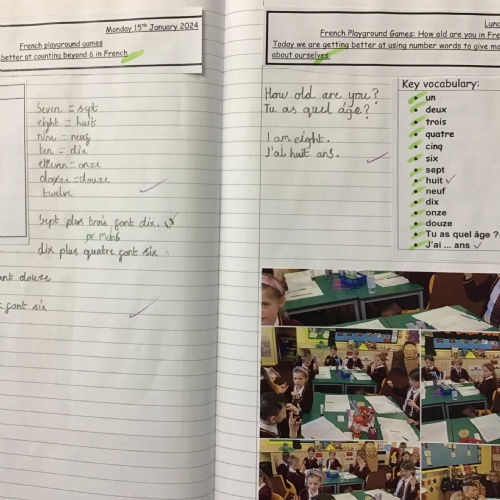 Monday 15th January 2024
French playground games
better at counting beyond 6 in French
seven = sept
eight = huit
nine = neuf
ten = dix
eleven = onze
douze = douze
twelve
Sept plus trois font dix.
dix plus quatre font six
ont douze
font six
French Playground Games: How old are you in Fre
Today we are getting better at using number words to give
about ourselves
How old are you?
Tu as quel âge?
I am eight.
J'ai huit ans.
Key vocabulary:
un
deux
trois
quatre
cinq
six
sept
huit
neuf
dix
onze
douze
Tu as quel âge ?
J'ai ... ans